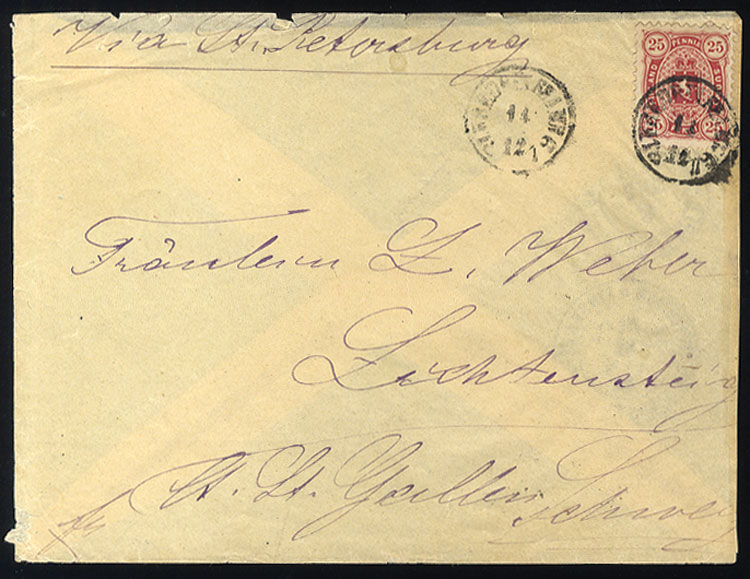 Via St. Petersburg
25 PENNIA 25
25 25
14
12
Fräulein L. Weber
Lichtensteig
Ct. St. Gallen
Schweiz